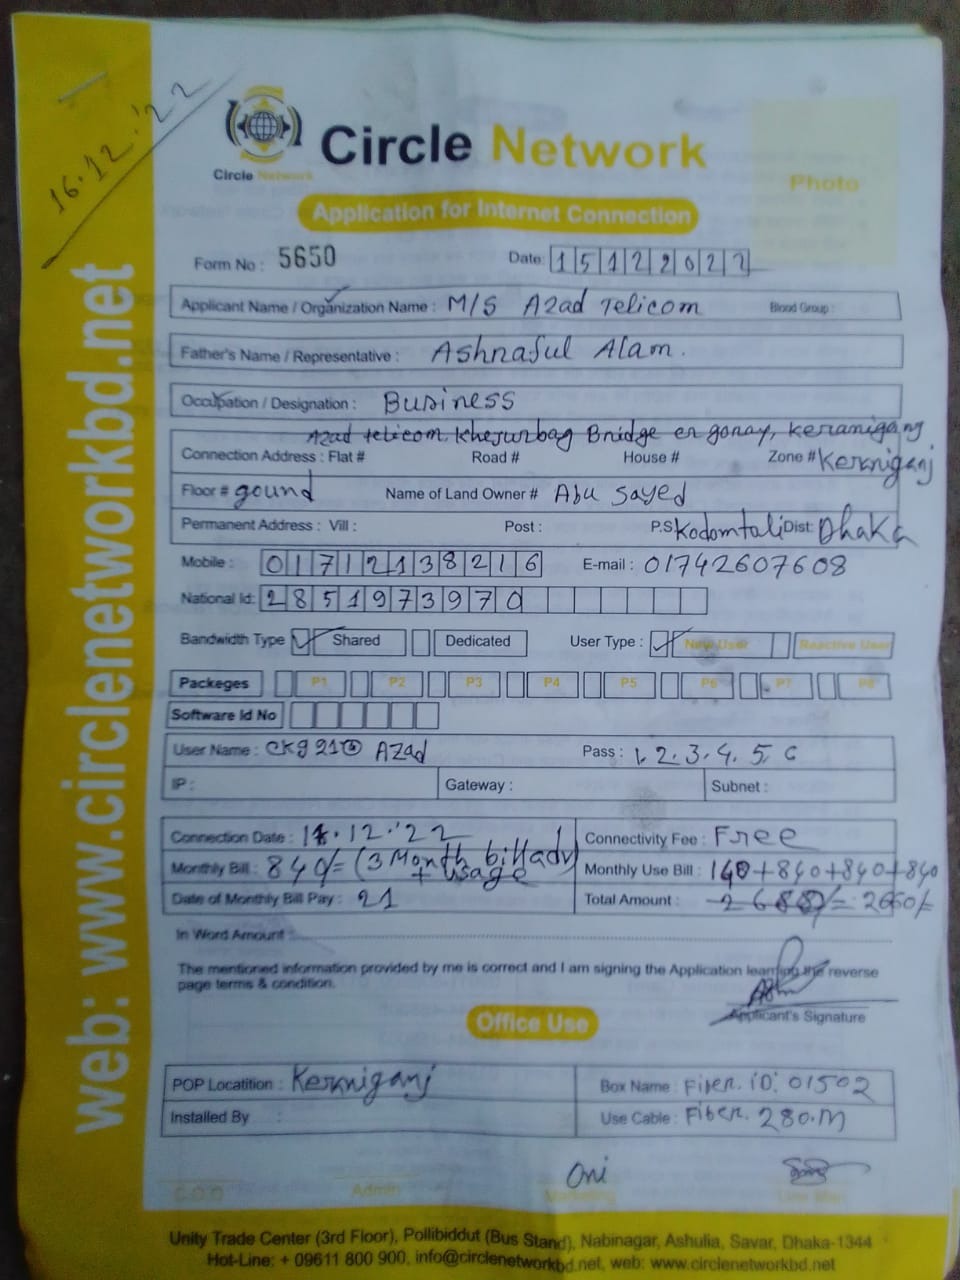 16.12.'22
Circle Network
Circle Network
Photo
Application for Internet Connection
Form No : 5650
Date: 15122022
Applicant Name / Organization Name : M/S Azad Telicom Blood Group :
Father's Name / Representative : Ashraful Alam.
Occupation / Designation : Business
Azad telicom, Khejurbag Bridge er goray, keranigang
Connection Address : Flat # Road # House # Zone # Kerniganj
Floor # gound Name of Land Owner # Abu Sayed
Permanent Address : Vill : Post : P.S Kodomtali Dist: Dhaka
Mobile : 01712138216 E-mail : 01742607608
National Id: 2851973970
Bandwidth Type Shared Dedicated User Type : New User Reactive User
Packeges P1 P2 P3 P4 P5 P6 P7 P8
Software Id No
User Name : Azad Pass : 1.2.3.4.5.6
IP : Gateway : Subnet :
Connection Date : .12.'22 Connectivity Fee : Free
Monthly Bill : 840/= (3 Month bill adv + usage Monthly Use Bill : 140+840+840+840
Date of Monthly Bill Pay : 21 Total Amount : 2660/=
In Word Amount :
The mentioned information provided by me is correct and I am signing the Application learning the reverse
page terms & condition.
Applicant's Signature
Office Use
POP Locatition : Kerniganj Box Name : Fiber. iD: 01502
Installed By : Use Cable : Fiber. 280.M
Oni
C.O.O Admin Marketing Line Man
Unity Trade Center (3rd Floor), Pollibiddut (Bus Stand), Nabinagar, Ashulia, Savar, Dhaka-1344
Hot-Line: + 09611 800 900, info@circlenetworkbd.net, web: www.circlenetworkbd.net
web: www.circlenetworkbd.net